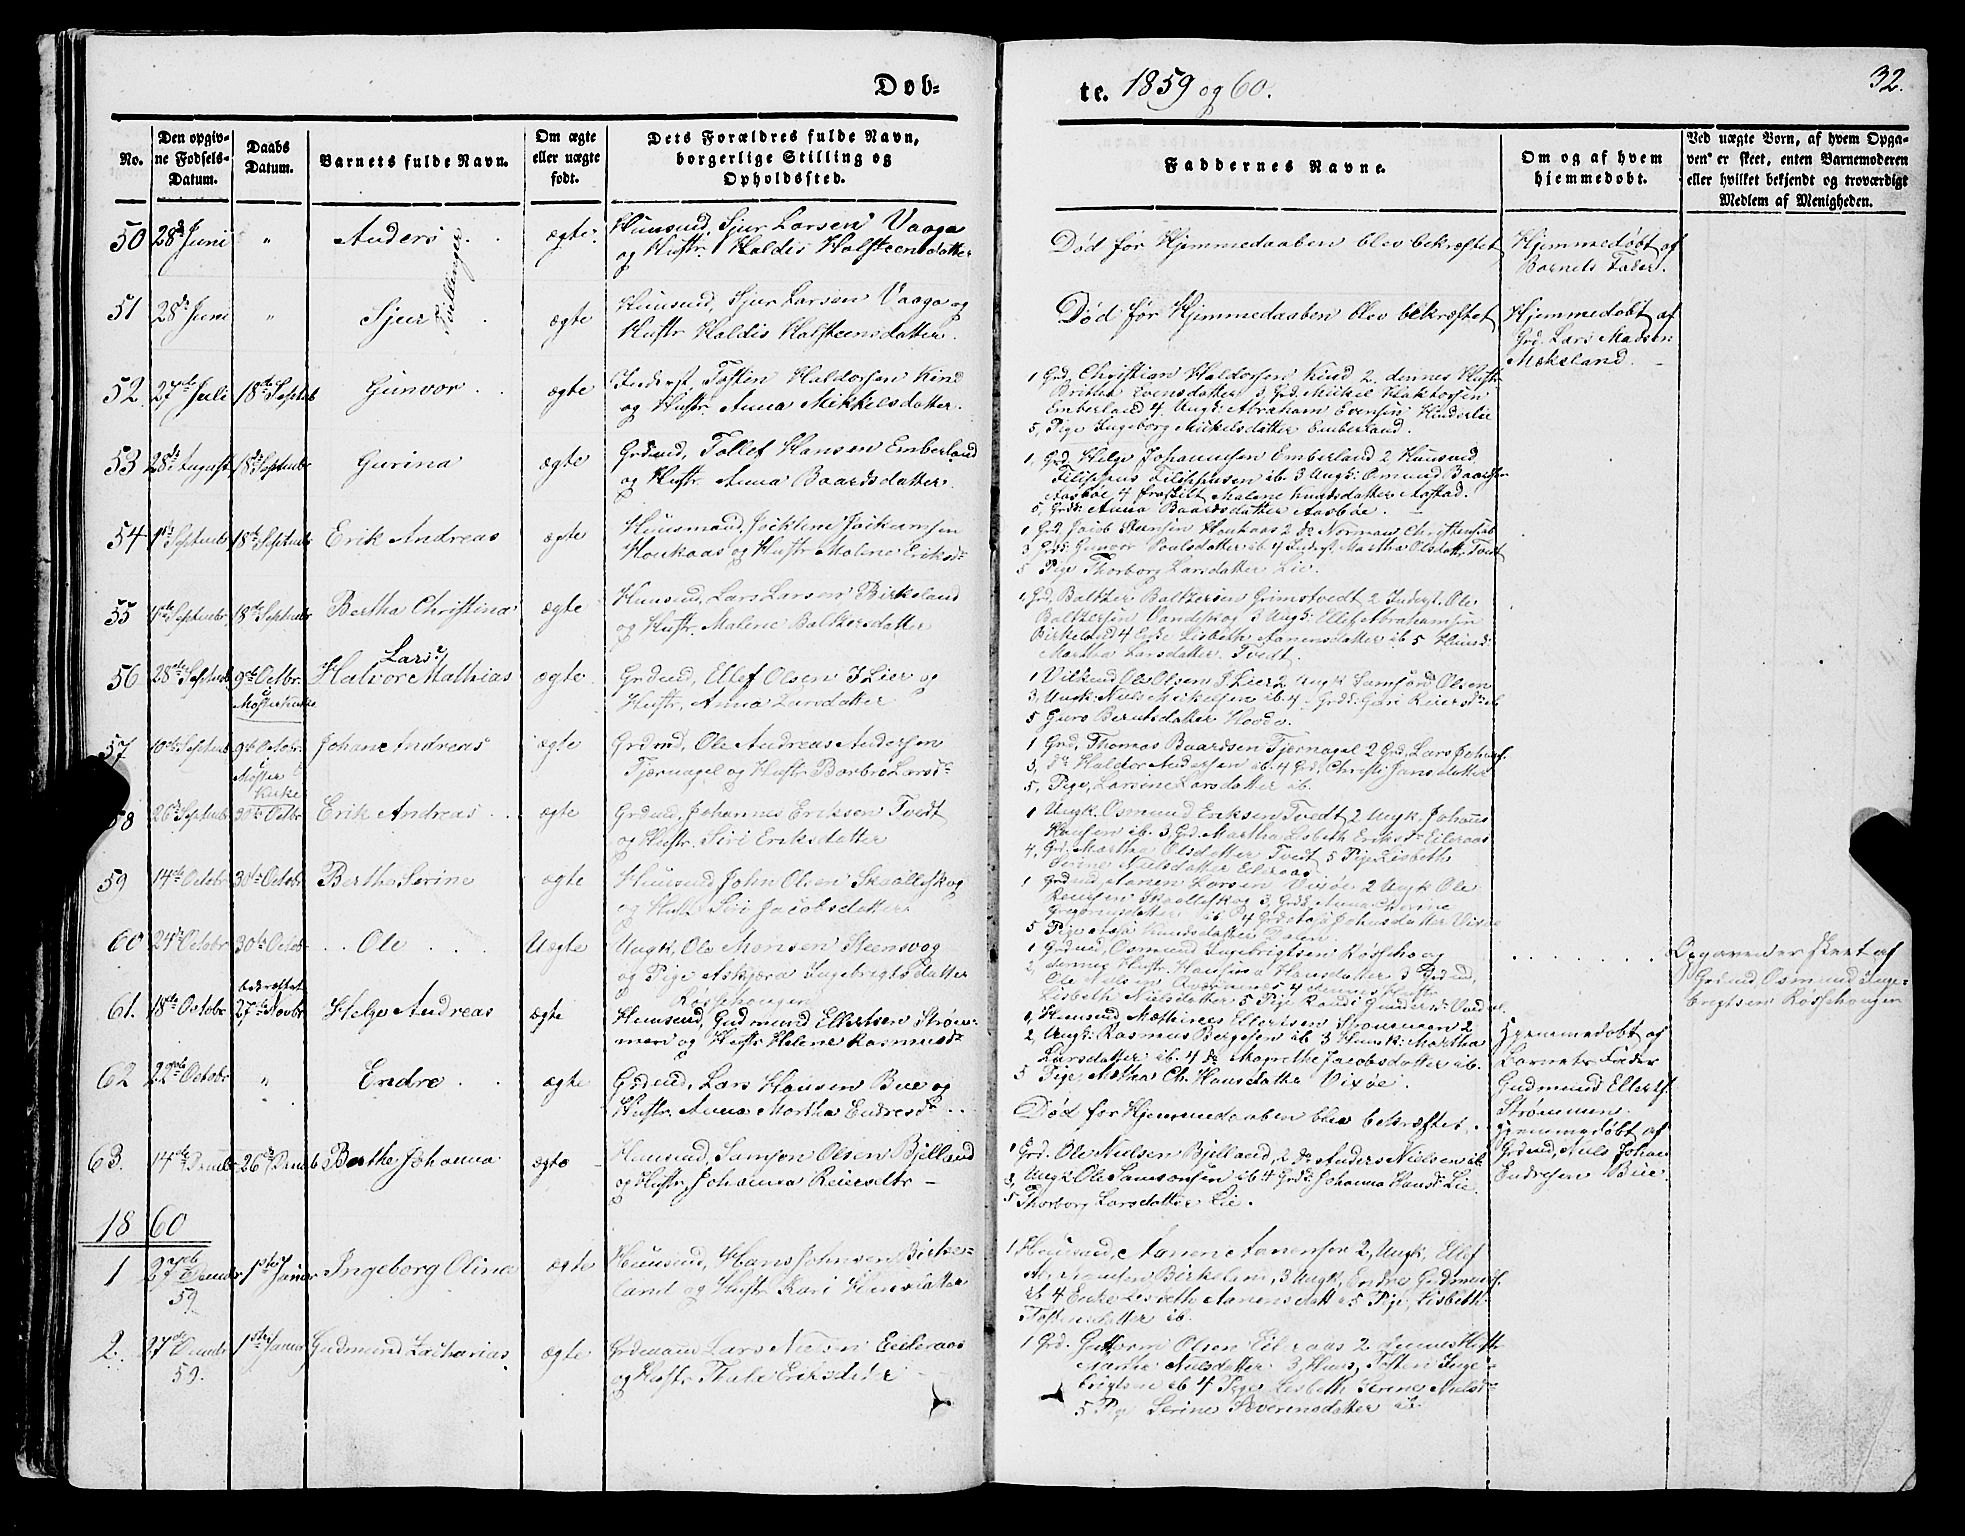 Døb-
te. 1859 og 60.
32.
No.
Den opgiv-
ne Fødsels-
Datum.
Daabs
Datum.
Barnets fulde Navn.
Om ægte
eller uægte
født.
Dets Forældres fulde Navn,
borgerlige Stilling og
Opholdssted.
Faddernes Navne.
Om og af hvem
hjemmedøbt.
Ved uægte Børn, af hvem Opga-
ven er skeet, enten Barnemoderen
eller hvilket bekjendt og troværdigt
Medlem af Menigheden.
50 28de Juni " Anders ægte Huusmd, Sjur Larsen Vaage
og Hustr. Haldis Halsteensdatter
Død før Hjemmedaaben blev bekræftet
Hjemmedøbt af
Barnets Fader.
Tvillinger
51 28de Juni " Sjur ægte Huusmd, Sjur Larsen Vaage og
Hustr Haldis Halsteensdatter.
Død før Hjemmedaaben blev bekræftet
Hjemmedøbt af
Grd. Lars Madsen
Mæheland
52. 27de Juli 18de Septbr Gunvor ægte Inderst, Tosten Haldorsen Kind
og Hustr. Anna Mikkelsdatter.
1 Grd, Christian Haldorsen Kind 2. dennes Hustr
Britha Evensdatter 3, Grd. Mickel
Emberland 4 Ungk: Abraham Evensen
5, Pige Ingeborg Mickelsdatter Emberland.
53 28de August 18de Septembr Gurina ægte Grdmd, Tollef Hansen Emberland
og Hustr. Anna Baardsdatter.
1, Grd. Helge Johannesen Emberland 2 Huusmd
Filippus Filippusen ib. 3 Ungk: Omund Baardsen
Aasbøe 4 Malene Knutsdatter
5, Grdk: Anna Baardsdatter Aasbøe.
54 1st Septembr 18de Septembr Erik Andreas ægte Huusmand,
Houkaas og Hustr Malene Eriksdr
1 Grd Jacob Houkaas 2 do Norman Christensen ib
3 Grdk: Gunvor Poulsdatter ib. 4 Inderst, Martha Olsdatter Tvedt
5 Pige Thorborg Larsdatter Lie.
55 4de Septembr 18de Septembr Bertha Christina ægte Huusmd, Lars Larsen Birkeland
og Hustr. Malene Baltzersdatter
1, Grd, Baltzer Baltzersen Grimstvedt 2 Inderst, Ole
Baltzersen Vandskog 3 Ungk: Ellef Abrahamsen
Birkeland 4 Enke Lisbeth Aanensdatter ib 5 Huusk:
Martha Larsdatter Tvedt.
56 28de Septembr 9de Octbr Lars
Moster Kirke
Halvor Mathias ægte Grdmd, Ellef Olsen Lier og
Hustr, Anna Larsdatter
1 Ole Olsen Lier 2 Ungk Samson Olsen
3, Ungk: Niels Mickelsen ib. 4. Grdk: Guri Reiersdr ib
5 Guro Berntsdatter Hovde.
57 10de Septembr 9de Octobr. Johan Andreas ægte Grdmd, Ole Andreas Andersen
i
Moster
Kirke
Tjernagel og Hustr Barbro Larsdr
1 Grd, Thomas Baardsen Tjernagel 2 Grd. Lars
3, do Haldor Andersen ib. 4 Grd, Christi Jansdatter
5, Pige, Larsine Larsdatter ib.
58 26de Septembr 30de Octbr. Erik Andreas ægte Grdmd, Johannes Eriksen Tvedt
og Hustr. Siri Eriksdatter
1 Ungk. Osmund Eriksen Tvedt, 2 Ungk. Johans
Hansen ib. 3 Grd. Martha Lisbeth Eriksdr Eileraas
4, Grd. Martha Olsdatter Tvedt 5 Pige Lisbeth
Serine Nielsdatter Eileraas
59 14de Octobr 30de Octobr Bertha Serine ægte Huusmd John Olsen Skaalleskog
og Hustr Siri Jacobsdatter
1 Grdmd, Aanen Larsen Vixøe 2 Ungk Ole
Skaalleskog 3, Grdk Anna Serine
Gregoriusdatter ib 4 Johnsdatter Vixøe
5 Pige
60 24de Octobr 30de Octobr Ole Uægte Ungk, Ole Monsen Steensvog
og Pige Askjæra Ingebrigtsdatter
Røsshougen
1 Grdmd, Osmund Ingebrigtsen Røsshoug
2, dennes Hustr. Hansina Hansdatter 3 Grdmd,
Ole Nielsen 4 dennes Hustr
Lisbeth Nielsdatter. 5 Pige Randi
Opgaven er skeet af
Grdmd Osmund Inge-
brigtsen Røsshougen
61. 18de Octobr bekræftet
27de Novbr Helge Andreas ægte Huusmd, Gudmund Ellertsen Strøm-
men og Hustr Helene Rasmusdr
1, Huusmd Mathias Ellertsen Strømmen 2
2, Ungk: Rasmus Børgesen ib 3 Huusk: Martha
Larsdatter ib. 4 do Magrethe Jacobsdatter ib.
5 Pige Martha Ch. Hansdatter Vixøe.
Hjemmedøbt af
Barnets Fader
Gudmund Ellerts.
Strømmen.
62 22de Octobr " Endre ægte Grdmd, Lars Hansen Bue og
Hustr. Anna Martha Endresdr
Død før Hjemmedaaben blev bekræftet.
Hjemmedøbt af
Grdmd, Niels Johan
Endresen Bue.
63. 14de Decmbr 26de Decmb Berthe Johanna ægte Huusmd, Samson Olsen Bjelland
og Hustr Johanna Reiersdtr
1 Grd. Ole Nielsen Bjelland, 2 do Anders Nielsen ib
3, Ungk Ole Samsonsen ib 4 Grdk: Johanna Lie,
5 Thorborg Larsdatter Lie.
1860
1 27de Decmbr 59 1ste Januar Ingeborg Olina ægte Huusmd, Hans Johnsen Birke-
land og Hustr Kari
1 Huusmd, Aanen Aanensen 2, Ungk, Ellef
Birkeland, 3 Ungk, Endre Gudmunds.
ib 4 Enke Lisbeth Aanensdatt ib 5 Pige, Lisbeth
Tostensdatter ib.
2. 27de Decmbr 59. 1ste Januar Gudmund Zacharias ægte Grdmand Lars Eileraas
og Hustr Thale Eriksdatter
1 Grd. Guttorm Olsen Eileraas 2 dennes Hustr
Marthe Nielsdatter 3, Huus, Tosten Inge-
brigtsen ib 4 Pige Lisbeth Serine Nielsdr
5 Pige Serine Severinsdatter ib.